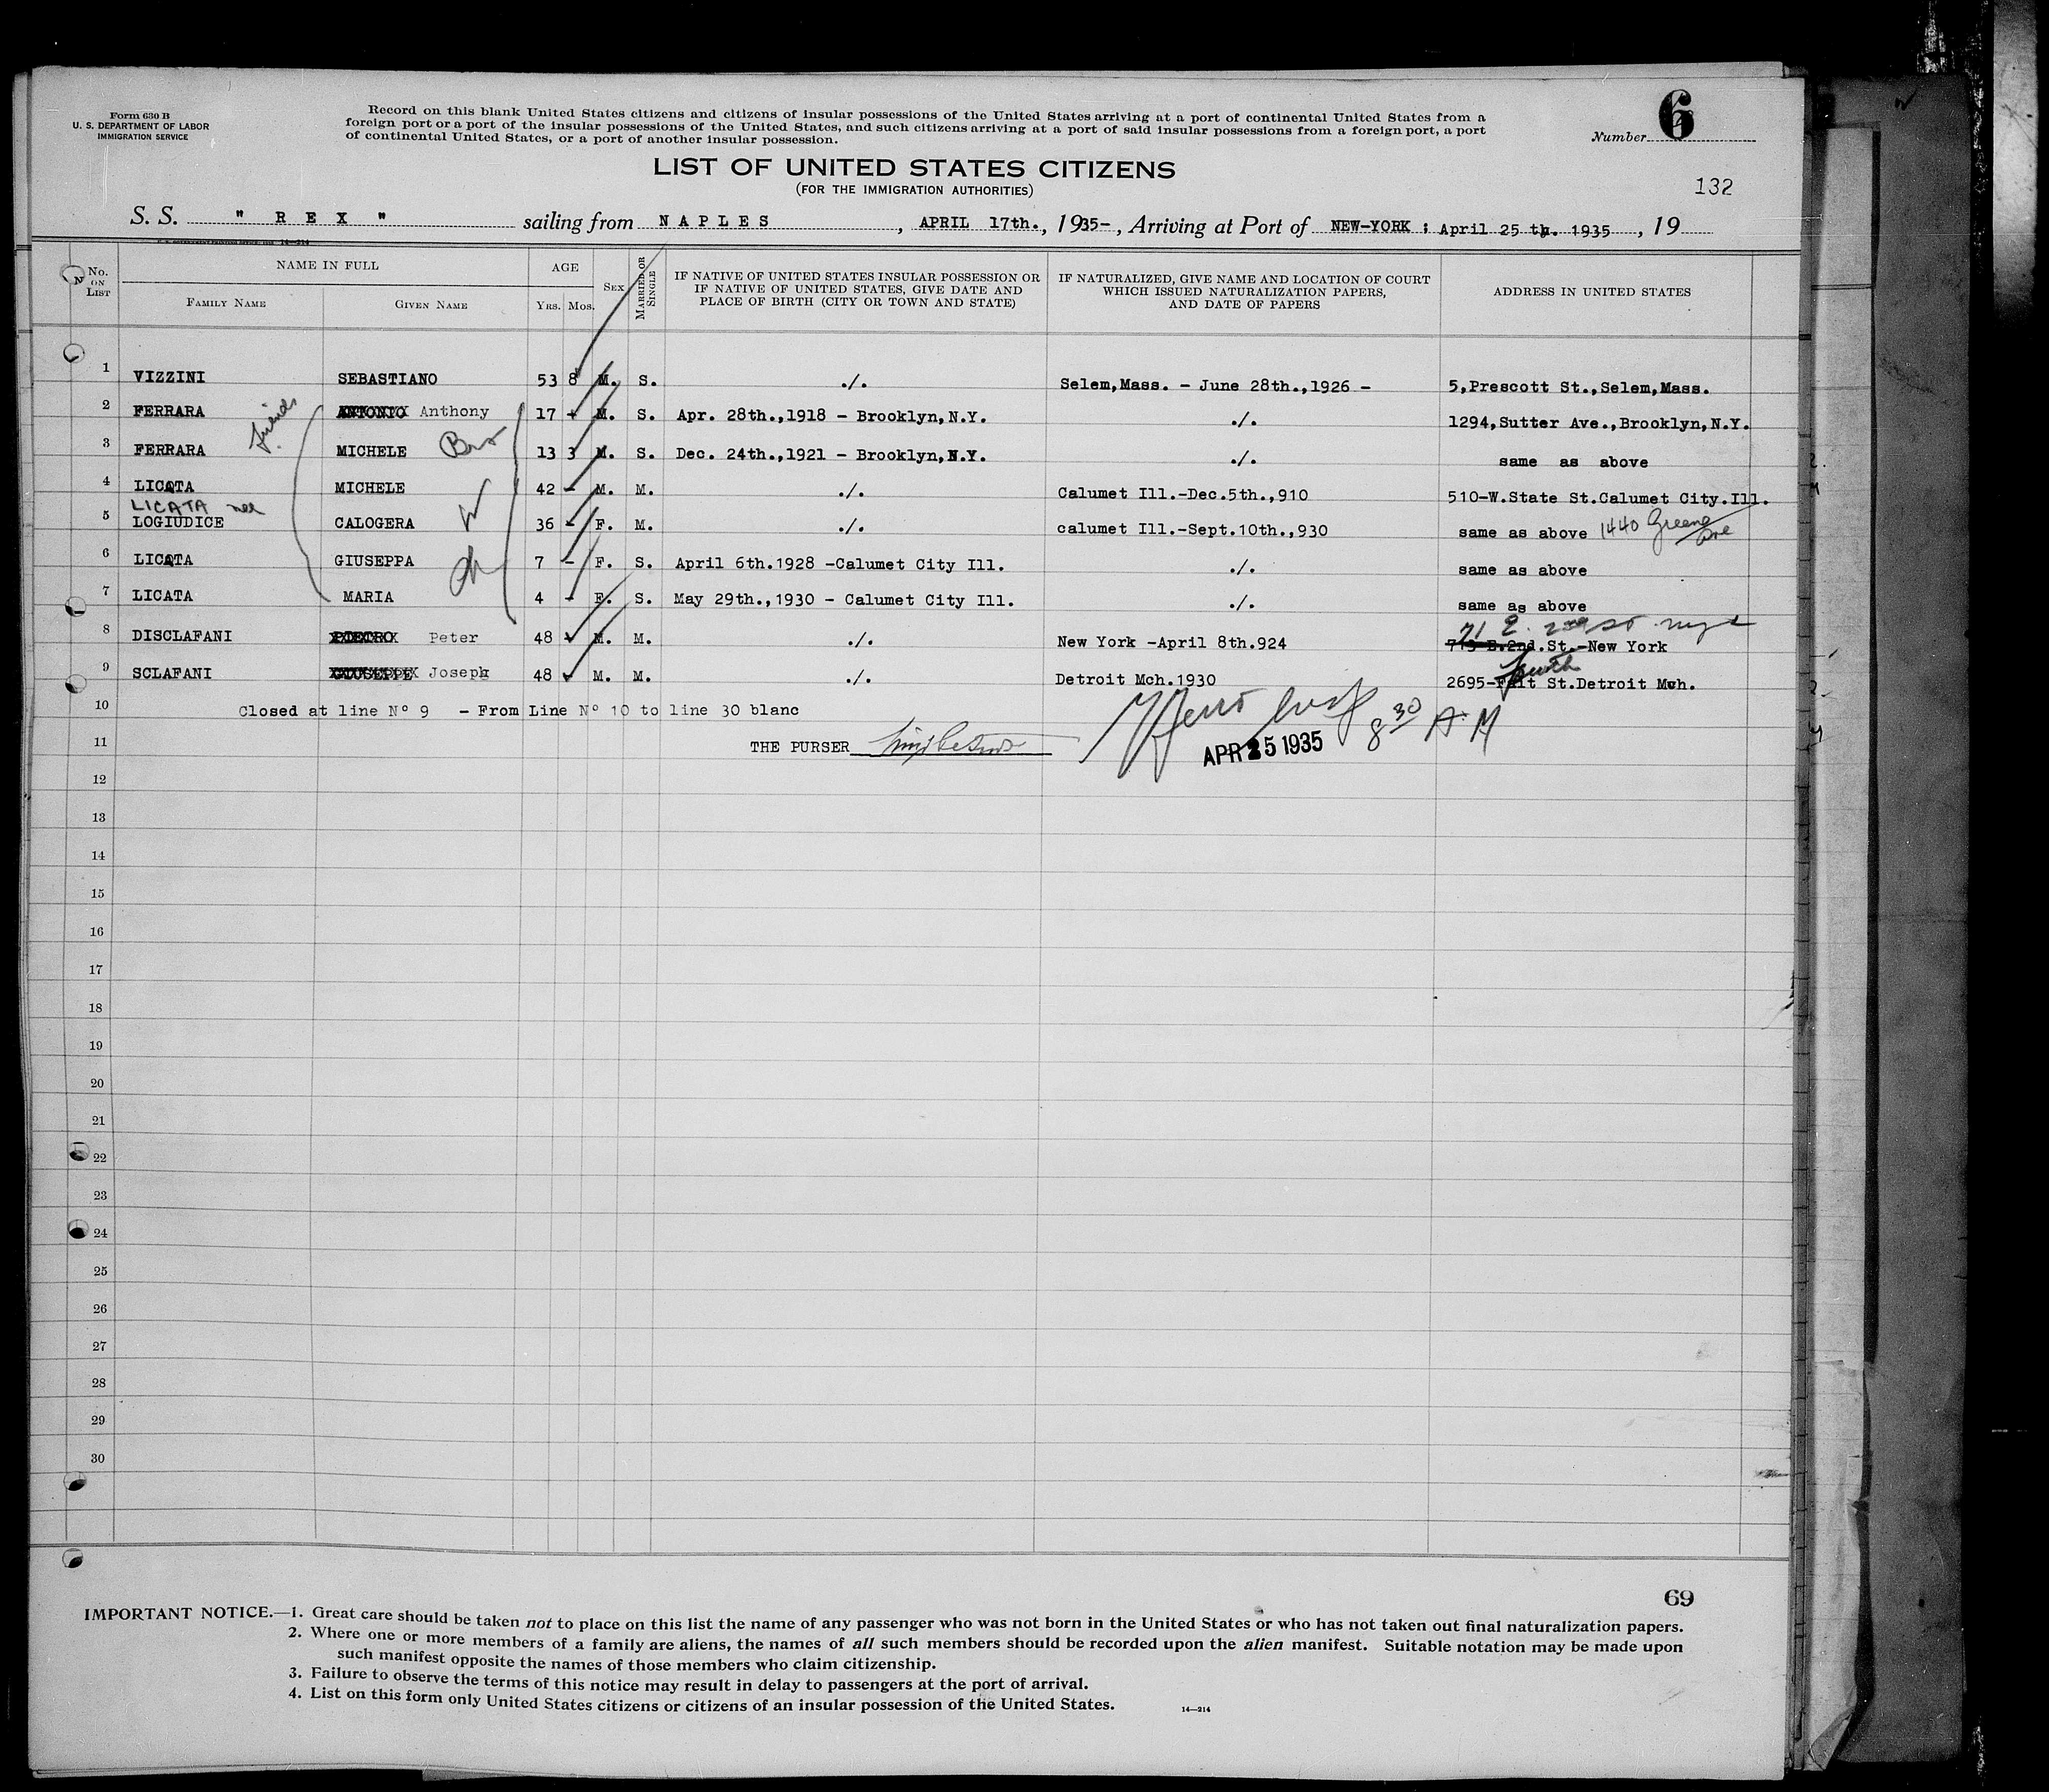 Form 630 B
U. S. DEPARTMENT OF LABOR
IMMIGRATION SERVICE
Record on this blank United States citizens and citizens of insular possessions of the United States arriving at a port of continental United States from a
foreign port or a port of the insular possessions of the United States, and such citizens arriving at a port of said insular possessions from a foreign port, a port
of continental United States, or a port of another insular possession.
Number 6
LIST OF UNITED STATES CITIZENS
(FOR THE IMMIGRATION AUTHORITIES)
132
S. S. " R E X " sailing from N A P L E S , APRIL 17th., 1935-, Arriving at Port of NEW-YORK : April 25 th. 1935 , 19
No. ON LIST NAME IN FULL AGE SEX MARRIED OR SINGLE IF NATIVE OF UNITED STATES INSULAR POSSESSION OR IF NATIVE OF UNITED STATES, GIVE DATE AND PLACE OF BIRTH (CITY OR TOWN AND STATE) IF NATURALIZED, GIVE NAME AND LOCATION OF COURT WHICH ISSUED NATURALIZATION PAPERS, AND DATE OF PAPERS ADDRESS IN UNITED STATES
FAMILY NAME GIVEN NAME YRS. MOS.
1 VIZZINI SEBASTIANO 53 8 M. S. ./. Selem,Mass. - June 28th.,1926 - 5,Prescott St.,Selem,Mass.
2 FERRARA ANTONIO Anthony 17 - M. S. Apr. 28th.,1918 - Brooklyn,N.Y. ./. 1294,Sutter Ave.,Brooklyn,N.Y.
friends
3 FERRARA MICHELE Bro 13 3 M. S. Dec. 24th.,1921 - Brooklyn,N.Y. ./. same as above
4 LICATA MICHELE 42 - M. M. ./. Calumet Ill.-Dec.5th.,910 510-W.State St.Calumet City.Ill.
LICATA nee
5 LOGIUDICE CALOGERA W 36 - F. M. ./. calumet Ill.-Sept.10th.,930 same as above 1440 Greene Ave
6 LICATA GIUSEPPA Ch 7 - F. S. April 6th.1928 -Calumet City Ill. ./. same as above
7 LICATA MARIA 4 - F. S. May 29th.,1930 - Calumet City Ill. ./. same as above
71 E. 2nd St.
8 DISCLAFANI PIETRO Peter 48 - M. M. ./. New York -April 8th.924 E.2nd.St.-New York
9 SCLAFANI GIUSEPPE Joseph 48 - M. M. ./. Detroit Mch.1930 2695- St.Detroit Mch.
10 Closed at line Nº 9 - From Line Nº 10 to line 30 blanc
8 30 A.M
11 THE PURSER
APR 25 1935
12
13
14
15
16
17
18
19
20
21
22
23
24
25
26
27
28
29
30
69
IMPORTANT NOTICE.—1. Great care should be taken not to place on this list the name of any passenger who was not born in the United States or who has not taken out final naturalization papers.
2. Where one or more members of a family are aliens, the names of all such members should be recorded upon the alien manifest. Suitable notation may be made upon
such manifest opposite the names of those members who claim citizenship.
3. Failure to observe the terms of this notice may result in delay to passengers at the port of arrival.
4. List on this form only United States citizens or citizens of an insular possession of the United States.
14—214